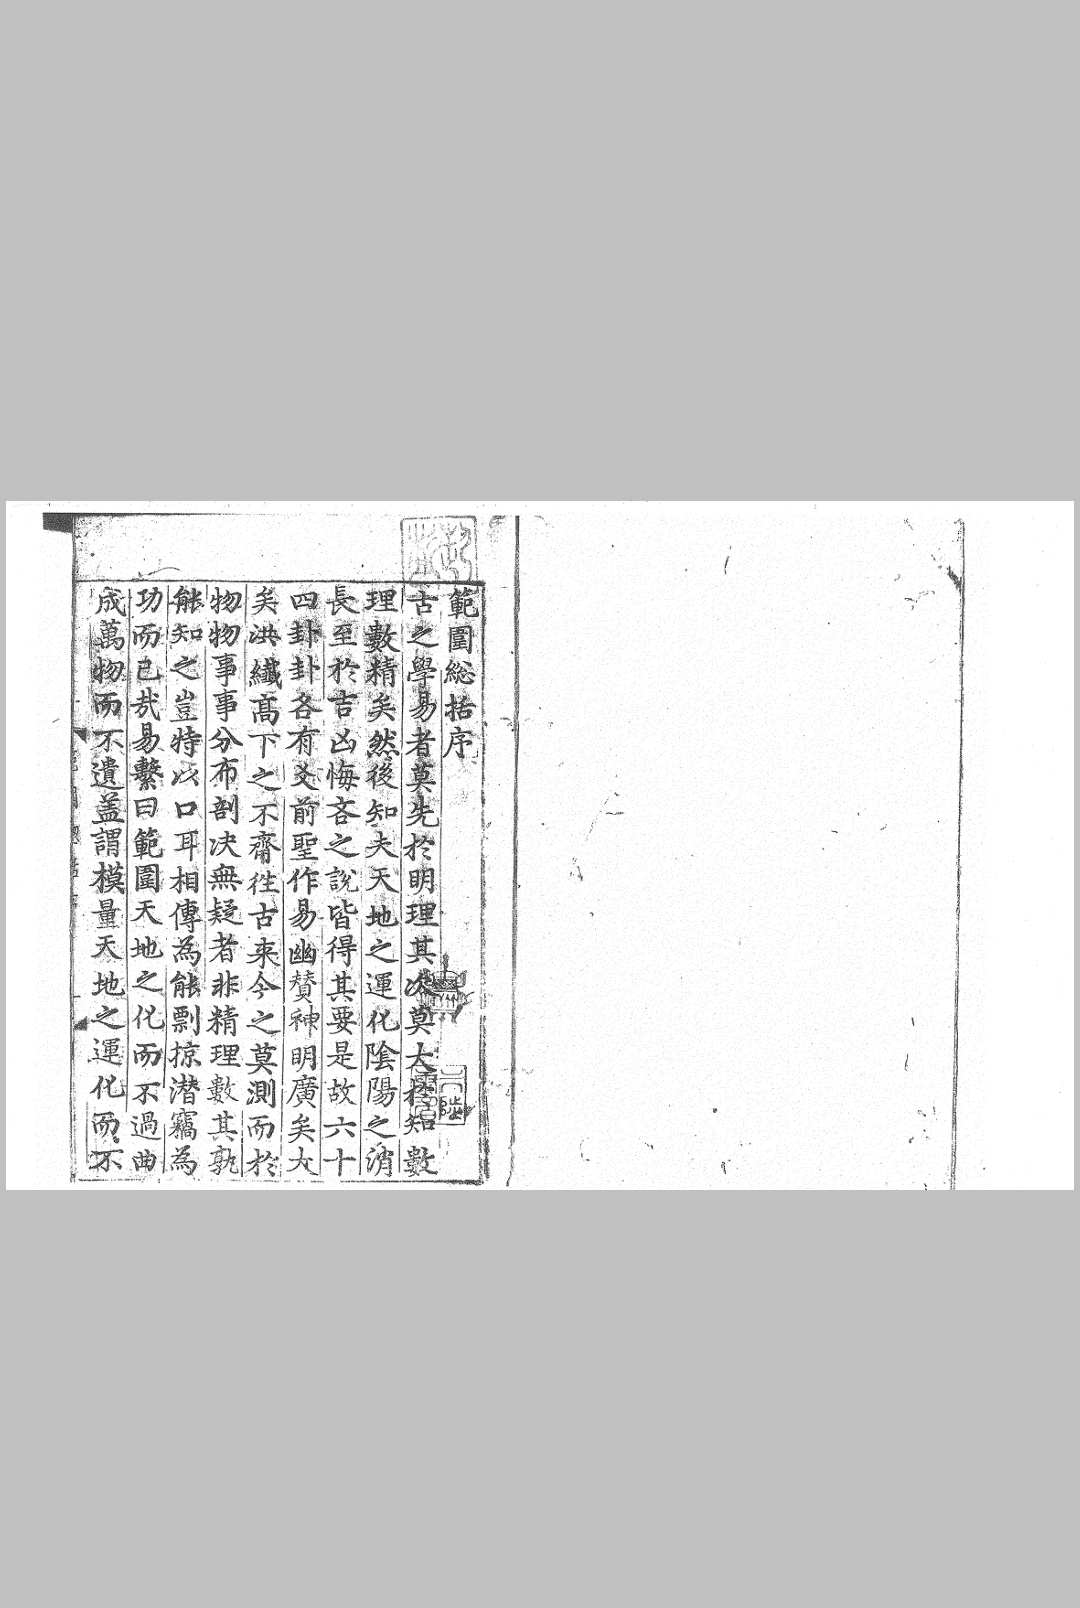 範圍総括序
古之學易者莫先於明理其次莫大於知數
理數精矣然後知夫天地之運化陰陽之消
長至於吉凶悔吝之說皆得其要是故六十
四卦卦各有爻前聖作易幽賛神明廣矣大
矣洪纖髙下之不齊徃古来今之莫測而於
物物事事分布剖决無疑者非精理數其孰
能知之豈特以口耳相傳為能剽掠潜竊為
功而已哉易繫曰範圍天地之化而不過曲
成萬物而不遺盖謂模量天地之運化而不